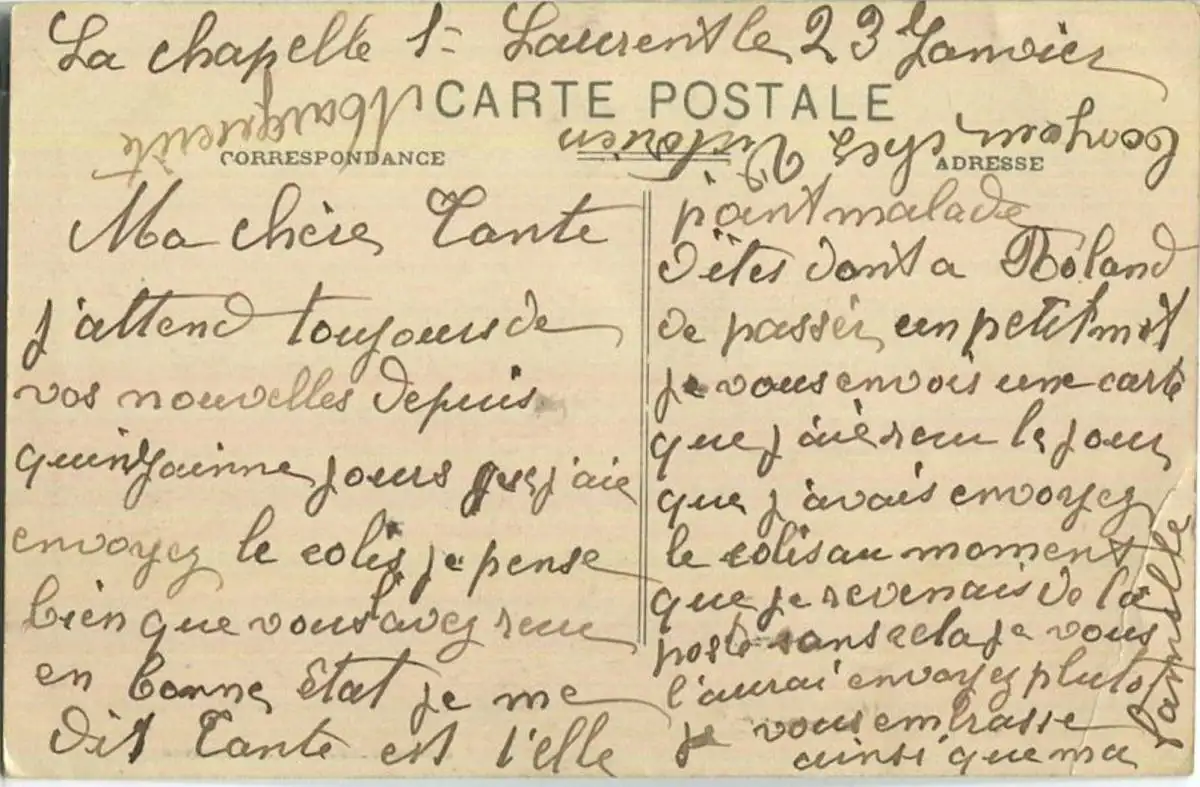 La chapelle St Laurent le 23 Janvier
CARTE POSTALE
CORRESPONDANCE
ADRESSE
Ma chère Tante
j'attend toujours de
vos nouvelles depuis
quinzainne jours que j'aie
envoyez le colis je pense
bien que vous l'avez reçu
en bonne état je me
dis Tante est t'elle
point malade
dites donts a Roland
de passer un petit mot
je vous envois une carte
que j'aie reçu le jour
que j'avais envoyez
le colis au moment
que je revenais de la
poste sans cela je vous
l'aurai envoyez plutot
je vous embrasse
ainsi que ma
famille
Marguerite
chez Victorien